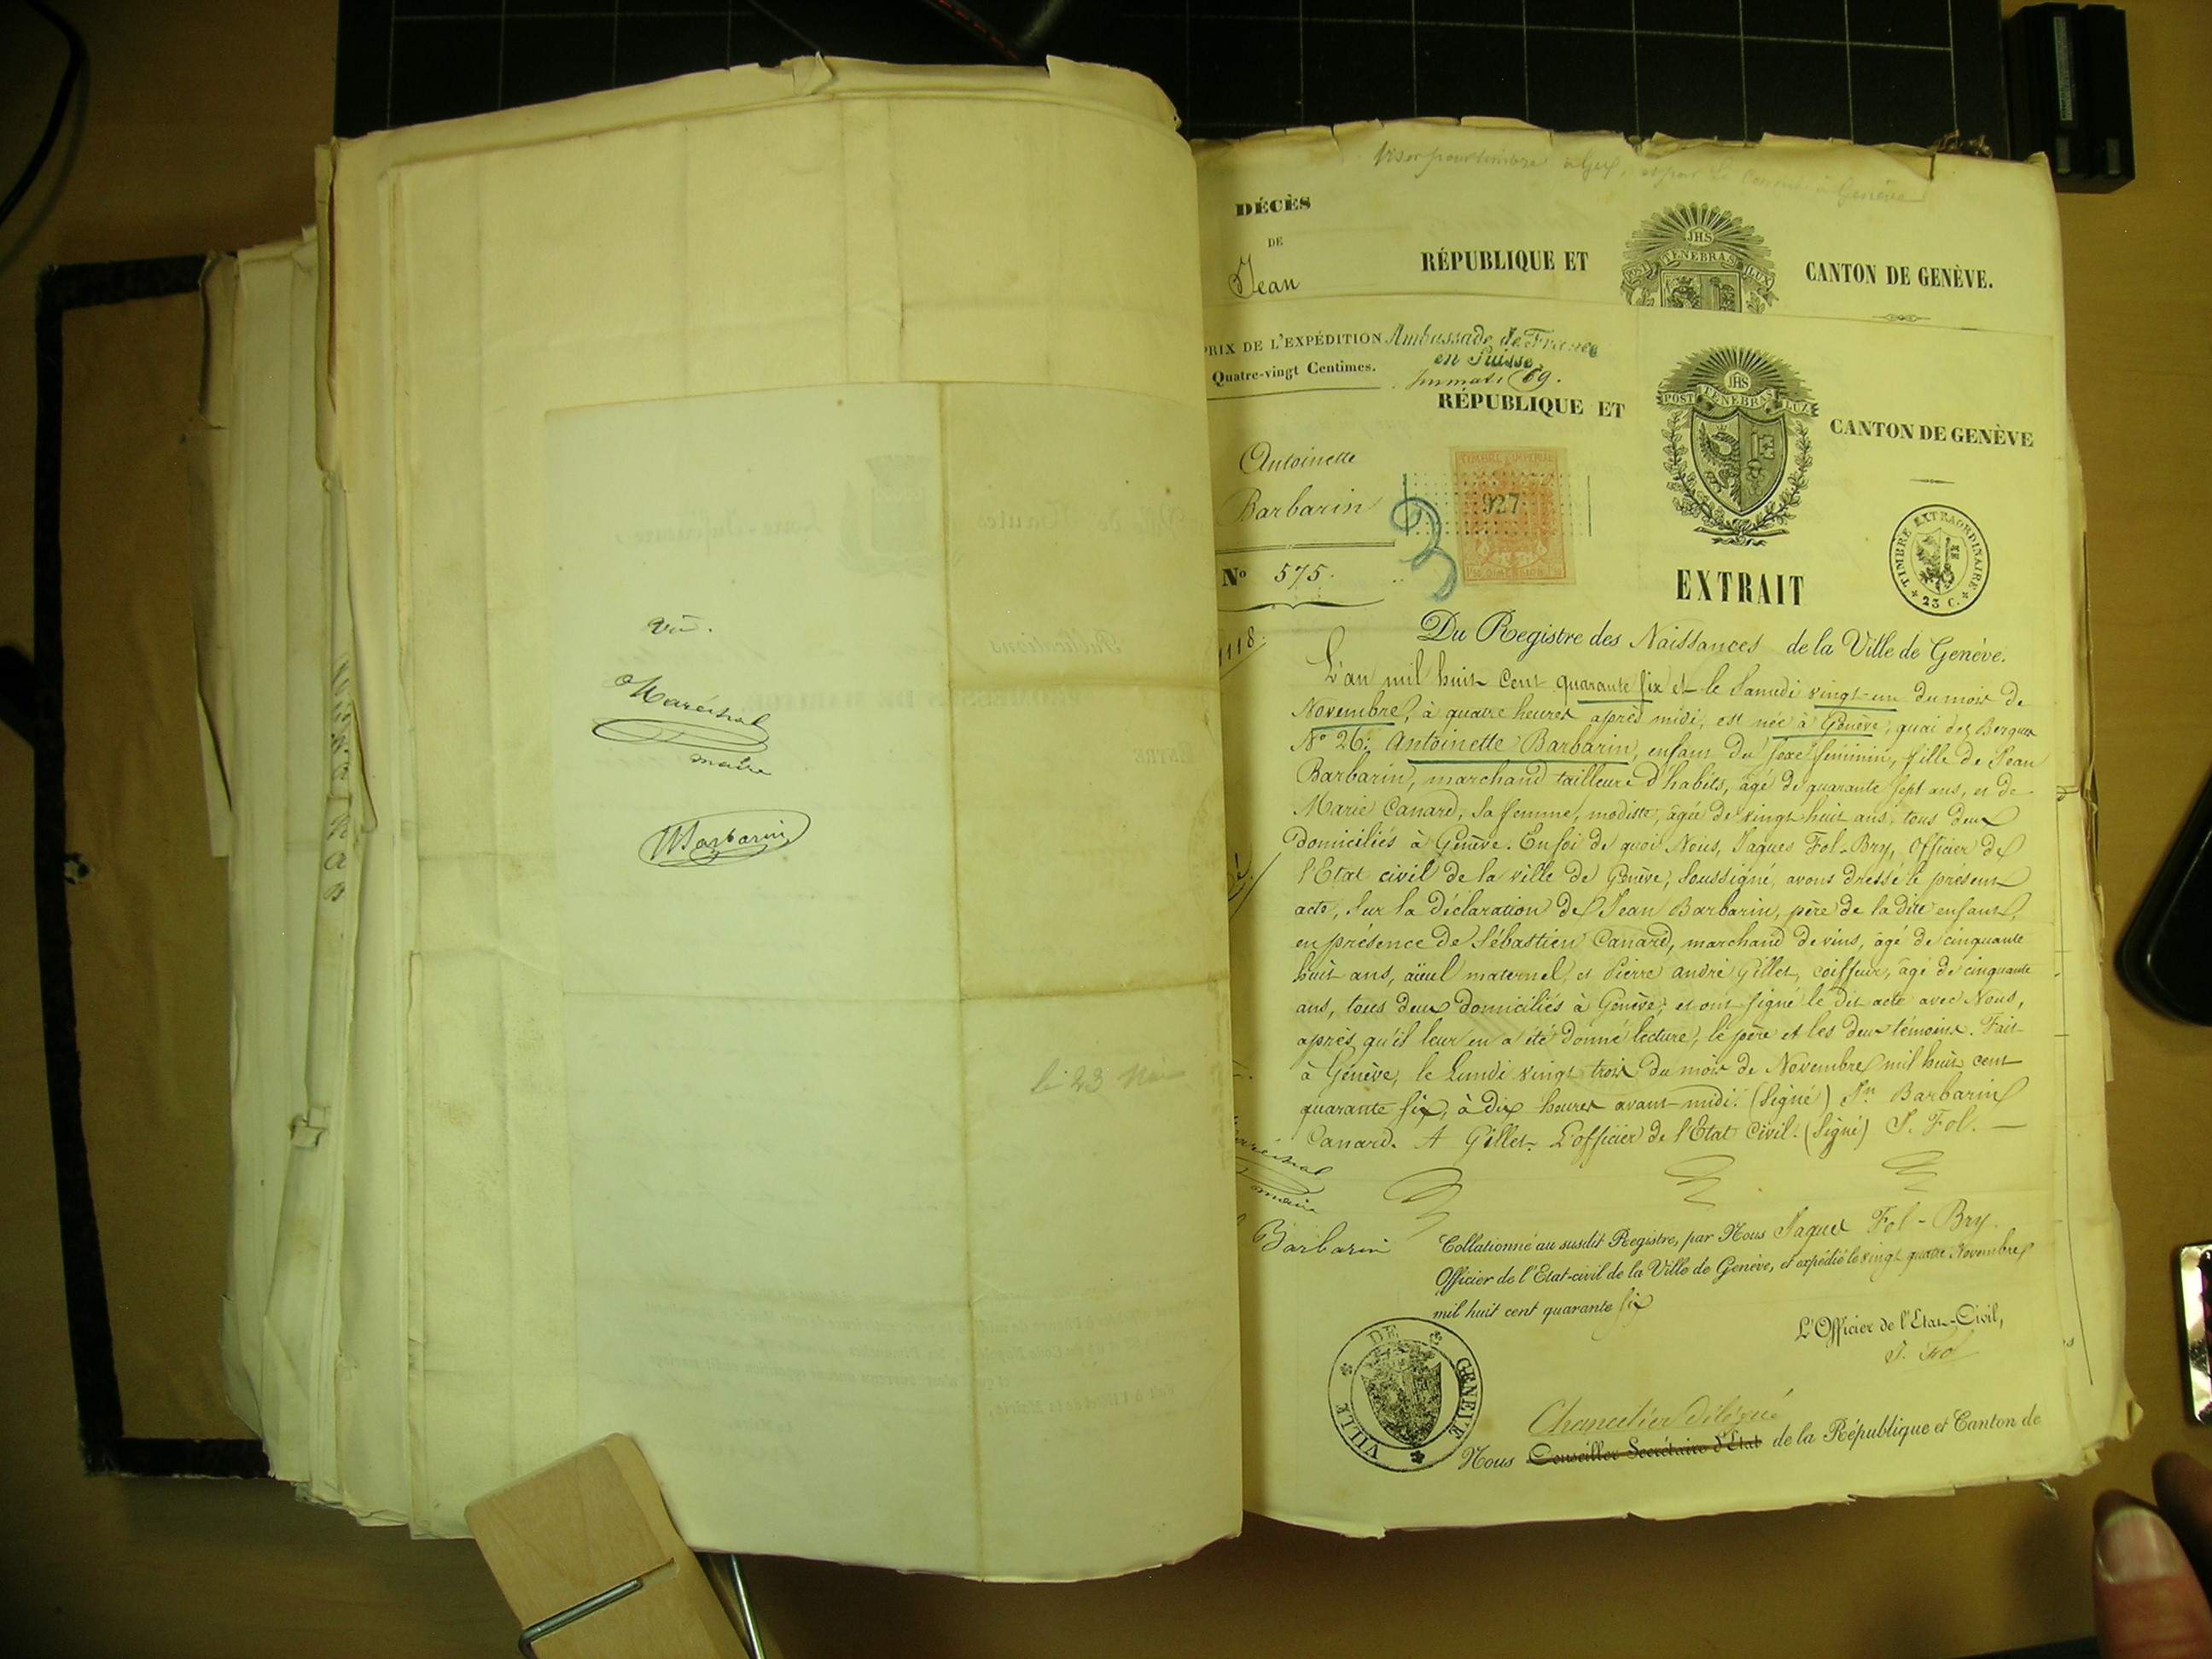 vû.
Maréchal
maire
Barbarin
le 23
Viser pour timbre à Gex, et par le à Genève
DÉCÈS
DE
Jean
RÉPUBLIQUE ET CANTON DE GENÈVE.
JHS
POST TENEBRAS LUX
PRIX DE L'EXPÉDITION
Quatre-vingt Centimes.
Ambassade de France
en Suisse
69.
RÉPUBLIQUE ET CANTON DE GENÈVE
JHS
POST TENEBRAS LUX
Antoinette
Barbarin
TIMBRE IMPERIAL
927
DIMENSION
3
No 575.
TIMBRE EXTRAORDINAIRE
23 C.
EXTRAIT
1118.
Du Registre des Naissances de la Ville de Genève.
L'an mil huit cent quarante six et le Samedi vingt-un du mois de
Novembre, à quatre heures après midi, est née à Genève, quai des Bergues
No 26: Antoinette Barbarin, enfant du sexe féminin, fille de Jean
Barbarin, marchand tailleur d'habits, âgé de quarante sept ans, et de
Marie Canard, sa femme, modiste, âgée de vingt huit ans, tous deux
domiciliés à Genève. En foi de quoi Nous, Jaques Fol-Bry, Officier de
l'Etat civil de la ville de Genève, soussigné, avons dressé le présent
acte, sur la déclaration de Jean Barbarin, père de la dite enfant,
en présence de Sébastien Canard, marchand de vins, âgé de cinquante
huit ans, aïeul maternel, et Pierre André Gillet, coiffeur, âgé de cinquante
ans, tous deux domiciliés à Genève; et ont signé le dit acte avec Nous,
après qu'il leur en a été donné lecture, le père et les deux témoins. Fait
à Genève, le Lundi vingt trois du mois de Novembre mil huit cent
quarante six, à dix heures avant-midi. (Signé) Jn Barbarin
Canard. A Gillet. L'officier de l'Etat Civil. (Signé) J. Fol. —
Maréchal
maire
Barbarin
Collationné au susdit Registre, par Nous Jaques Fol-Bry.
Officier de l'Etat-civil de la Ville de Genève, et expédié le vingt quatre Novembre
mil huit cent quarante six
L'Officier de l'Etat-Civil,
J. Fol
VILLE DE GENEVE
Chancelier délégué
Nous Conseiller Secrétaire d'Etat de la République et Canton de